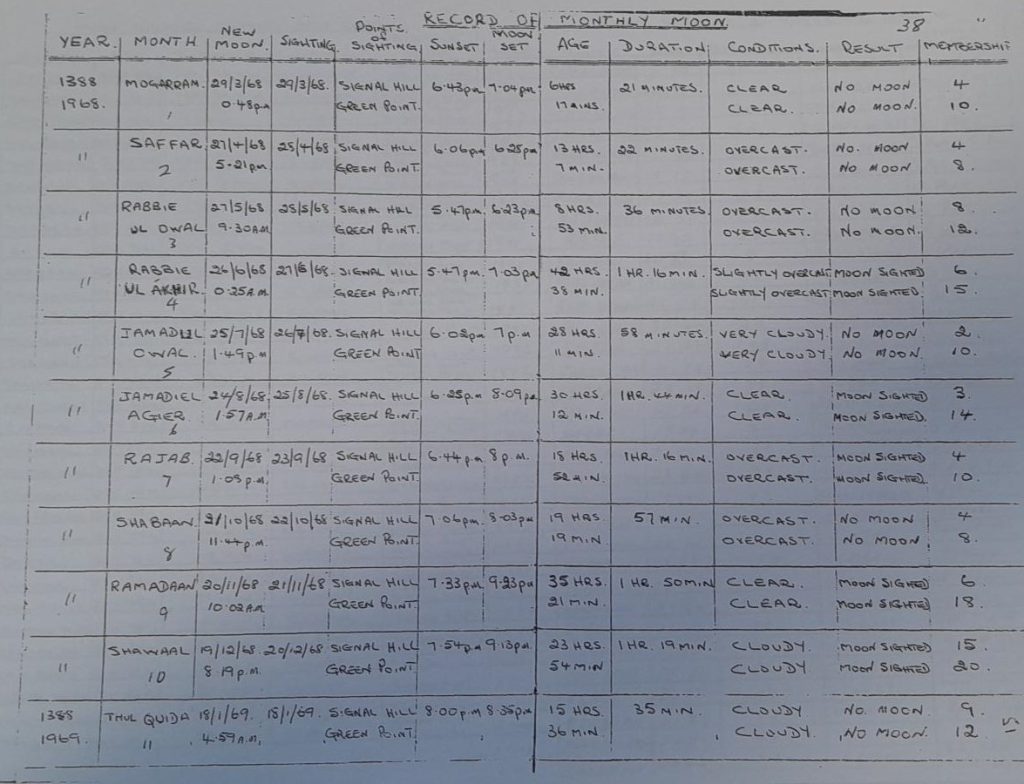 RECORD OF MONTHLY MOON. 38
YEAR. MONTH NEW MOON. SIGHTING. POINTS OF SIGHTING SUNSET MOON SET AGE DURATION. CONDITIONS. RESULT MEMBERSHIP
1388 MOGARRAM. 29/3/68 29/3/68. SIGNAL HILL 6.43pm 7.04pm 6HRS 21 MINUTES. CLEAR NO MOON 4
1968. 1 0.48pm GREEN POINT. 17 MINS. CLEAR. NO MOON. 10.
" SAFFAR 27/4/68 28/4/68 SIGNAL HILL 6.06pm 6.28pm 13 HRS. 22 MINUTES. OVERCAST. NO. MOON 4
2 5.21pm GREEN POINT. 7 MIN. OVERCAST. NO MOON 8.
" RABBIE 27/5/68 28/5/68 SIGNAL HILL 5.47pm 6.23pm 8 HRS. 36 MINUTES. OVERCAST. NO MOON 8.
UL OWAL 9.30AM GREEN POINT. 53 MIN. OVERCAST. NO MOON. 12.
3
" RABBIE 26/6/68 27/6/68. SIGNAL HILL 5.47pm. 7.03pm 42 HRS. 1 HR. 16 MIN. SLIGHTLY OVERCAST MOON SIGHTED 6.
UL AKHIR 0.25A.M. GREEN POINT. 38 MIN. SLIGHTLY OVERCAST MOON SIGHTED. 15.
4
" JAMADIEL 25/7/68 26/7/68. SIGNAL HILL 6.02pm 7p.m 28 HRS. 58 MINUTES. VERY CLOUDY. NO MOON 2
OWAL. 1.49p.m GREEN POINT 11 MIN. VERY CLOUDY. NO MOON. 10.
5
" JAMADIEL 24/8/68 25/8/68. SIGNAL HILL 6.25pm 8.09pm 30 HRS. 1HR. 44 MIN. CLEAR. MOON SIGHTED 3.
AGIER 1.57A.M. GREEN POINT. 12 MIN. CLEAR. MOON SIGHTED. 14.
6
" RAJAB. 22/9/68 23/9/68 SIGNAL HILL 6.44pm 8 p.m. 18 HRS. 1HR. 16 MIN. OVERCAST. MOON SIGHTED 4
7 1.09p.m. GREEN POINT. 52 MIN. OVERCAST. MOON SIGHTED. 10.
" SHABAAN 21/10/68 22/10/68 SIGNAL HILL 7.06pm 8.03pm 19 HRS. 57 MIN. OVERCAST. NO MOON 4
8 11.44p.m. GREEN POINT. 19 MIN OVERCAST. NO MOON. 8.
" RAMADAAN 20/11/68 21/11/68 SIGNAL HILL 7.33pm 9.23pm 35 HRS. 1 HR. 50 MIN CLEAR. MOON SIGHTED 6
9 10.02A.M GREEN POINT. 21 MIN. CLEAR. MOON SIGHTED 18.
" SHAWAAL 19/12/68. 20/12/68 SIGNAL HILL 7.54pm 9.13pm. 23 HRS. 1 HR. 19 MIN. CLOUDY. MOON SIGHTED 15.
10 8.19p.m. GREEN POINT. 54 MIN CLOUDY MOON SIGHTED 20.
1388 THUL QUIDA 18/1/69. 18/1/69. SIGNAL HILL 8.00p.m 8.35pm 15 HRS. 35 MIN. CLOUDY NO. MOON. 9.
1969. 11 4.59A.M. GREEN POINT. 36 MIN. CLOUDY. NO MOON. 12